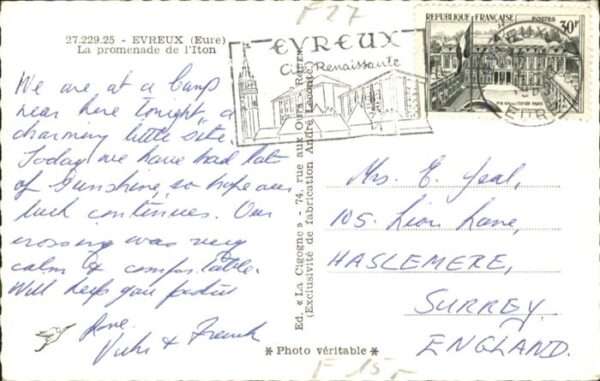 F27
27.229.25 - EVREUX (Eure)
La promenade de l'Iton
We are at a Camp
near here tonight, a
charming little site.
Today we have had lots
of Sunshine, so hope our
luck continues. Our
crossing was very
calm & comfortable.
Will keep you posted
Love
Vicki & Frank
EVREUX
Cité Renaissante
RÉPUBLIQUE FRANÇAISE
POSTES
30F
EVREUX
EURE
Ed. « La Cigogne » - 74, rue aux Ours - Rouen
(Exclusivité de fabrication André Leconte)
Mrs. E.
105. Lion Lane,
HASLEMERE,
SURREY.
ENGLAND.
* Photo véritable *
F 15 F